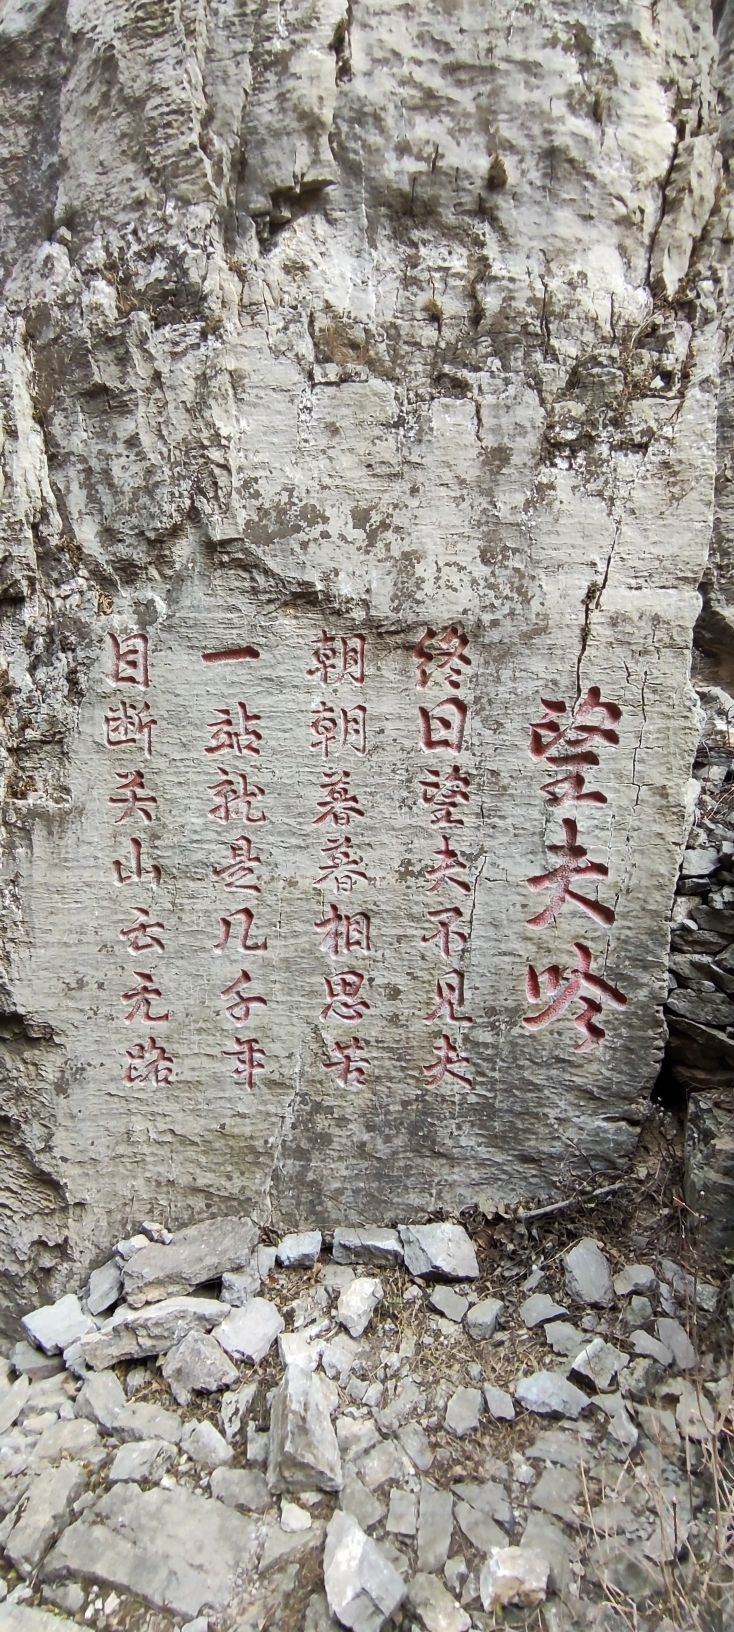 望夫吟
终日望夫不见夫
朝朝暮暮相思苦
一站就是几千年
目断关山云无路